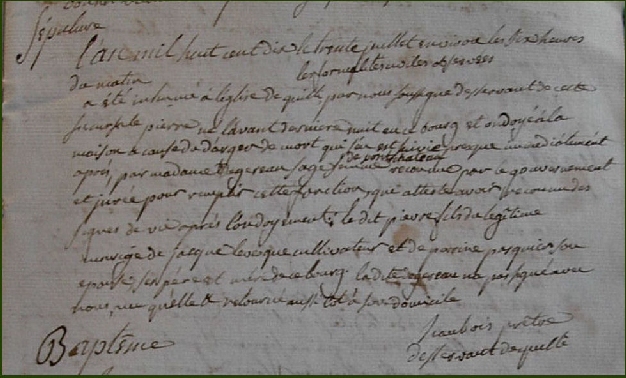 Sépulture
l'an mil huit cent dix le trente juillet environ les six heures
du matin les formalités civiles observées
a été inhumé à l'église de quilly par nous soussigné desservant de cette
succursale pierre né l'avant dernière nuit en ce bourg et ondoyé à la
maison à cause de danger de mort qui s'en est suivie presque immédiatement
de pontchateau
après, par madame sage femme reconnue par le gouvernement
et jurée pour remplir cette fonction, que atteste avoir reconnu des
signes de vie après l'ondoyement; le dit pierre fils du légitime
mariage de jacque cultivateur et de perrine son
epouse ses père et mère de ce bourg. la dite ne signe avec
nous, vu qu'elle est retournée aussi tôt à son domicile
prêtre
desservant de quilly
Baptême